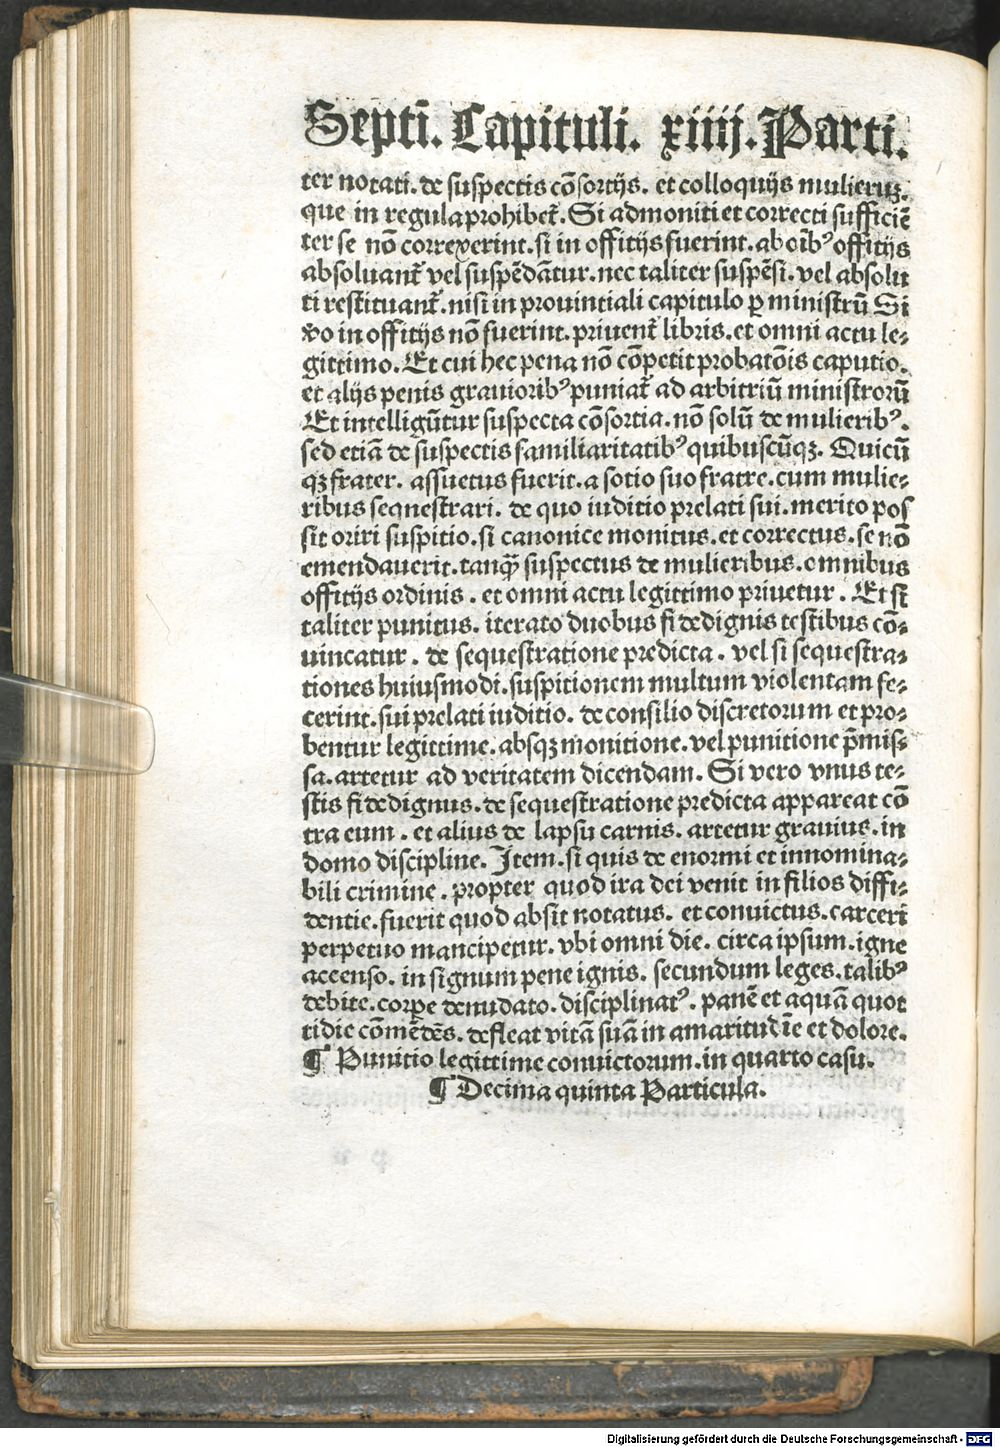 Septĩ. Capituli. xiiij. Parti.
ter notati. de suspectis cõsortijs. et colloquijs mulierũ.
que in regula prohibet̃. Si admoniti et correcti sufficiẽ
ter se nõ correxerint. si in offitijs fuerint. ab oĩbꝰ offitijs
absoluant̃ vel suspẽdãtur. nec taliter suspẽsi. vel absolu
ti restituant̃. nisi in prouintiali capitulo ꝑ ministrũ Si
ṽo in offitijs nõ fuerint. priuent̃ libris. et omni actu le⸗
gittimo. Et cui hec pena nõ cõpetit probatõis caputio.
et alijs penis grauioribꝰ puniat̃ ad arbitriũ ministrorũ
Et intelligũtur suspecta cõsortia. nõ solũ de mulieribꝰ.
sed etiã de suspectis familiaritatibꝰ quibuscũqꝫ. Quicũ
qꝫ frater. assuetus fuerit. a sotio suo fratre. cum mulie⸗
ribus sequestrari. de quo iuditio prelati sui. merito pos
sit oriri suspitio. si canonice monitus. et correctus. se nõ
emendauerit. tanꝙ̃ suspectus de mulieribus. omnibus
offitijs ordinis. et omni actu legittimo priuetur. Et si
taliter punitus. iterato duobus fidedignis testibus cõ⸗
uincatur. de sequestratione predicta. vel si sequestra⸗
tiones huiusmodi. suspitionem multum violentam fe⸗
cerint. sui prelati iuditio. de consilio discretorum et pro⸗
bentur legittime. absqꝫ monitione. vel punitione p̃mis⸗
sa. artetur ad veritatem dicendam. Si vero vnus te⸗
stis fidedignus. de sequestratione predicta appareat cõ
tra eum. et alius de lapsu carnis. artetur grauius. in
domo discipline. Item. si quis de enormi et innomina⸗
bili crimine. propter quod ira dei venit in filios diffi⸗
dentie. fuerit quod absit notatus. et conuictus. carceri
perpetuo mancipetur. vbi omni die. circa ipsum. igne
accenso. in signum pene ignis. secundum leges. talibꝰ
debite. corꝑe denudato. disciplinatꝰ. panẽ et aquã quot
tidie cõmẽdẽs. defleat vitã suã in amaritudĩe et dolore.
¶ Punitio legittime conuictorum. in quarto casu.
¶ Decima quinta Particula.
Digitalisierung gefördert durch die Deutsche Forschungsgemeinschaft - DFG